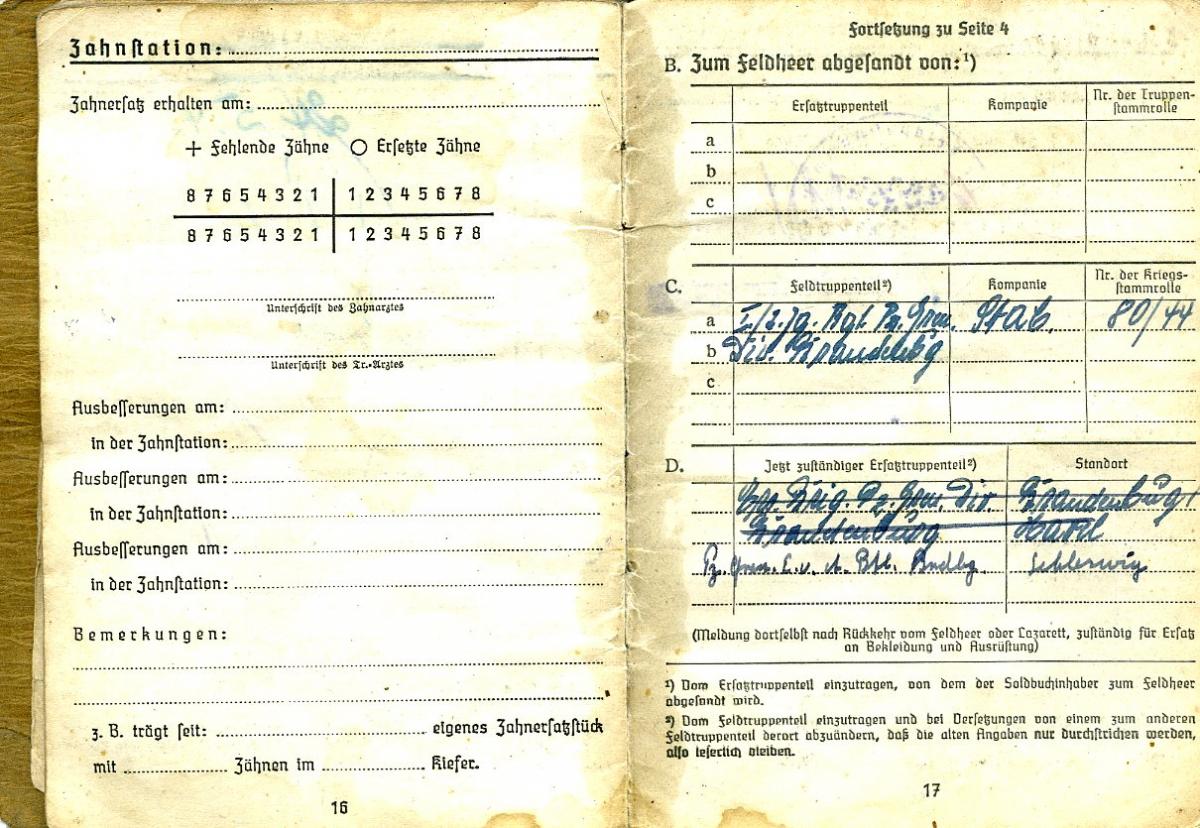 Zahnstation:
Zahnersatz erhalten am:
+ Fehlende Zähne O Ersetzte Zähne
8 7 6 5 4 3 2 1 | 1 2 3 4 5 6 7 8
8 7 6 5 4 3 2 1 | 1 2 3 4 5 6 7 8
Unterschrift des Zahnarztes
Unterschrift des Tr.-Arztes
Ausbesserungen am:
in der Zahnstation:
Ausbesserungen am:
in der Zahnstation:
Ausbesserungen am:
in der Zahnstation:
Bemerkungen:
z. B. trägt seit: eigenes Zahnersatzstück
mit Zähnen im Kiefer.
16
Fortsetzung zu Seite 4
B. Zum Feldheer abgesandt von:¹)
Ersatztruppenteil Kompanie Nr. der Truppen-
stammrolle
a
b
c
C. Feldtruppenteil²) Kompanie Nr. der Kriegs-
stammrolle
a I/2. Jg. Rgt. Pz. Gren. Stab. 80/44
b Div. Brandenbg
c
D. Jetzt zuständiger Ersatztruppenteil²) Standort
Brig. Pz. Gren. Div. Brandenburg
Brandenburg Havel
Pz. Gren. E. u. A. Btl. Brdbg. Schleswig
(Meldung dortselbst nach Rückkehr vom Feldheer oder Lazarett, zuständig für Ersatz
an Bekleidung und Ausrüstung)
¹) Vom Ersatztruppenteil einzutragen, von dem der Soldbuchinhaber zum Feldheer
abgesandt wird.
²) Vom Feldtruppenteil einzutragen und bei Versetzungen von einem zum anderen
Feldtruppenteil derart abzuändern, daß die alten Angaben nur durchstrichen werden,
also leserlich bleiben.
17